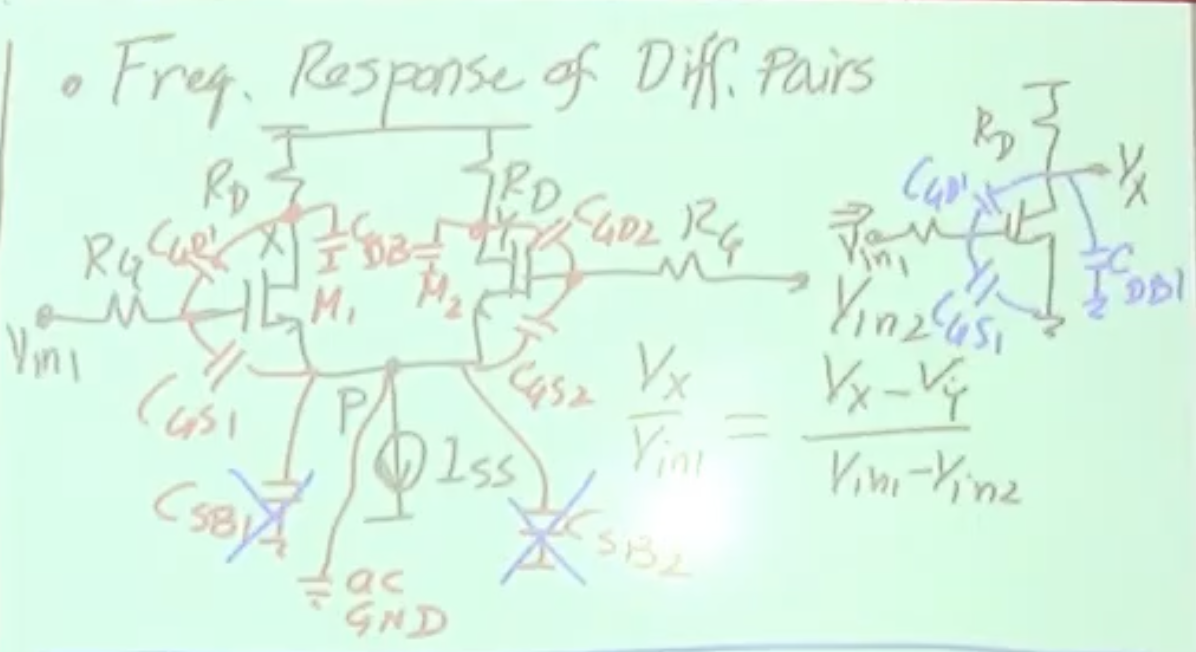 • Freq. Response of Diff. Pairs
R_D
R_D
R_D
C_GD1
X
C_DB
Y
C_GD2
R_G
R_G
M_1
M_2
V_in1
V_in2
C_GS1
P
C_GS2
I_SS
C_SB1
C_SB2
ac
GND
C_GD1
V_X
V_in1
C_GS1
C_DB1
V_X / V_in1 = V_X - V_Y / V_in1 - V_in2